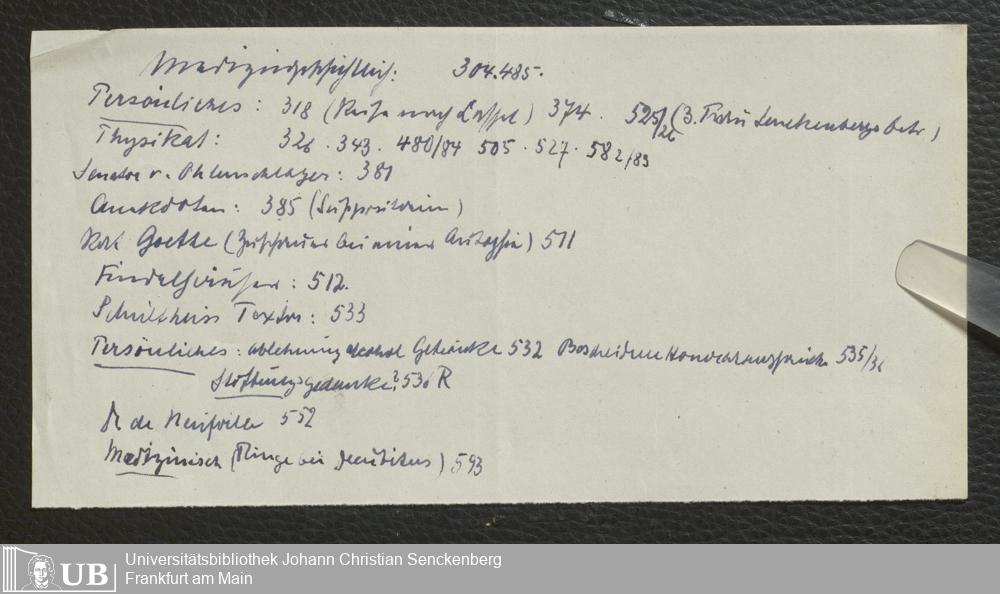 Medizingeschichtlich: 304.485.
Persönliches: 318 (Reise nach Cassel) 374. 525/26 (3. Frau Senckenbergs betr.)
Physikat: 326. 343. 480/84 505. 527. 582/83
Senator v. Ohlenschlager: 381
Anekdoten: 385 (Suppositorium)
Rat Goethe (Zuschauer bei einer Autopsie) 511
Findelhäuser: 512.
Schultheiss Textor: 533
Persönliches: Ablehnung alcohol Getränke 532 Bescheidene Honoraransprüche 535/36
Stiftungsgedanke? 536 R
Dr de Neufville 552
Medizinisch (Ringe bei Decubitus) 593
UB
Universitätsbibliothek Johann Christian Senckenberg
Frankfurt am Main